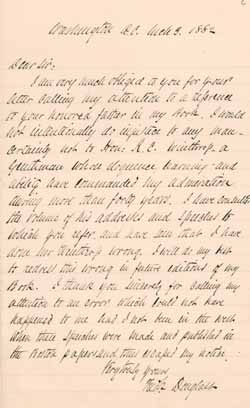 Washington D.C. Feb 3. 1882
Dear Sir:
I am very much obliged to you for your
letter calling my attention to a reference
to your honored father in my Book. I would
not intentionally do injustice to any man—
certainly not to Hon: R.C. Winthrop. a
Gentleman whose eloquence learning and
ability have commanded my admiration
during more than forty years. I have consulted
the volume of his addresses and speeches to
which you refer. and have seen that I have
done Mr Winthrop wrong. I will do my best
to redress this wrong in future editions of my
Book. I thank you sincerely for calling my
attention to an error which could not have
happened to me had I not been in the west
when those speeches were made and published in
the Boston papers and thus escaped my notice.
Respectfully yours,
Fredk Douglass